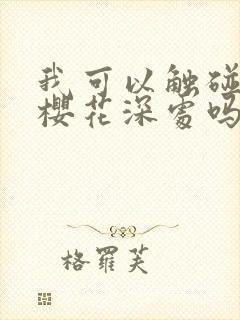 我可以触碰
樱花深处吗
格羅芙